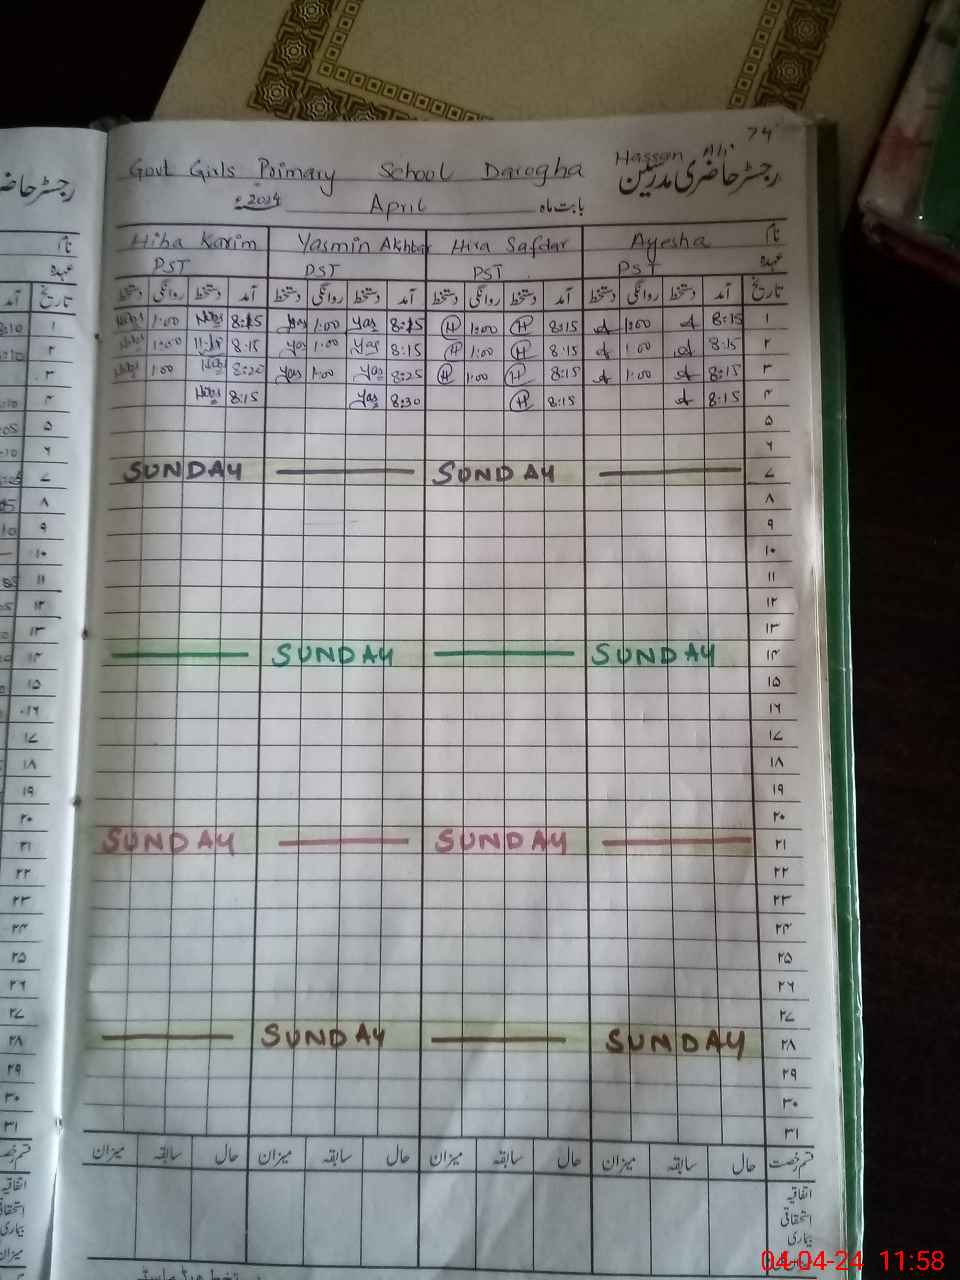 74
Govt Girls Primary School Darogha Hassan Ali رجسٹر حاضری مدرسین
2024ء April بابت ماہ
Hiba Karim Yasmin Akhtar Hira Safdar Ayesha نام
PST PST PST PST عہدہ
دستخط روانگی دستخط آمد دستخط روانگی دستخط آمد دستخط روانگی دستخط آمد دستخط روانگی دستخط آمد تاریخ
1:00 8:15 Yas 1:00 Yas 8:15 H 1:00 H 8:15 A 1:00 A 8:15 ۱
1:00 8:15 Yas 1:00 Yas 8:15 H 1:00 H 8:15 A 1:00 A 8:15 ۲
1:00 8:20 Yas 1:00 Yas 8:25 H 1:00 H 8:15 A 1:00 A 8:15 ۳
8:15 Yas 8:30 H 8:15 A 8:15 ۴
۵
۶
SUNDAY SUNDAY ۷
۸
۹
۱۰
۱۱
۱۲
۱۳
SUNDAY SUNDAY ۱۴
۱۵
۱۶
۱۷
۱۸
۱۹
۲۰
SUNDAY SUNDAY ۲۱
۲۲
۲۳
۲۴
۲۵
۲۶
۲۷
SUNDAY SUNDAY ۲۸
۲۹
۳۰
۳۱
میزان سابقہ حال میزان سابقہ حال میزان سابقہ حال میزان سابقہ حال قسم رخصت
اتفاقیہ
استحقاقی
بیماری
04-04-24 11:58